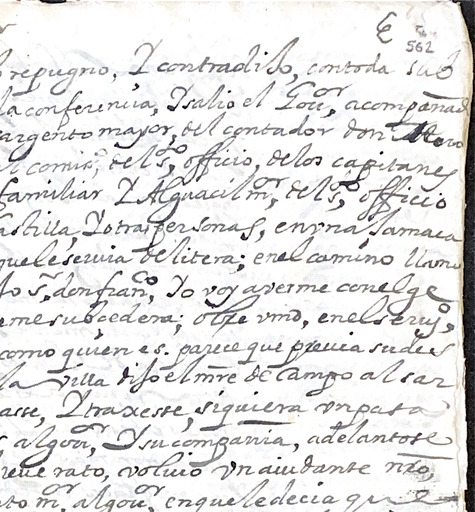 562
repugno, Y contradiso, con toda su b
la conferencia, Y salio el Gou.or acompañad
sargento mayor, del contador don
el comis.o del S.to officio, de los capitanes
familiar Y Alguacil m.or del S.to officio
castilla, Y otras personas, en vna hamaca
que le seruia de litera; en el camino llamo
s.r don fran.co, Yo voy averme con el ge
eme subçedera; obre vmd, en el seruj.o
como quien es. parece que preuia su des
la villa diso el mre de campo al sar
ase, Y traxese, siquiera vn pata
al gou.or, Y su compania, adelantose
breue rato, voluio vn aiudante nro,
to m.or al gou.or en que le decia que